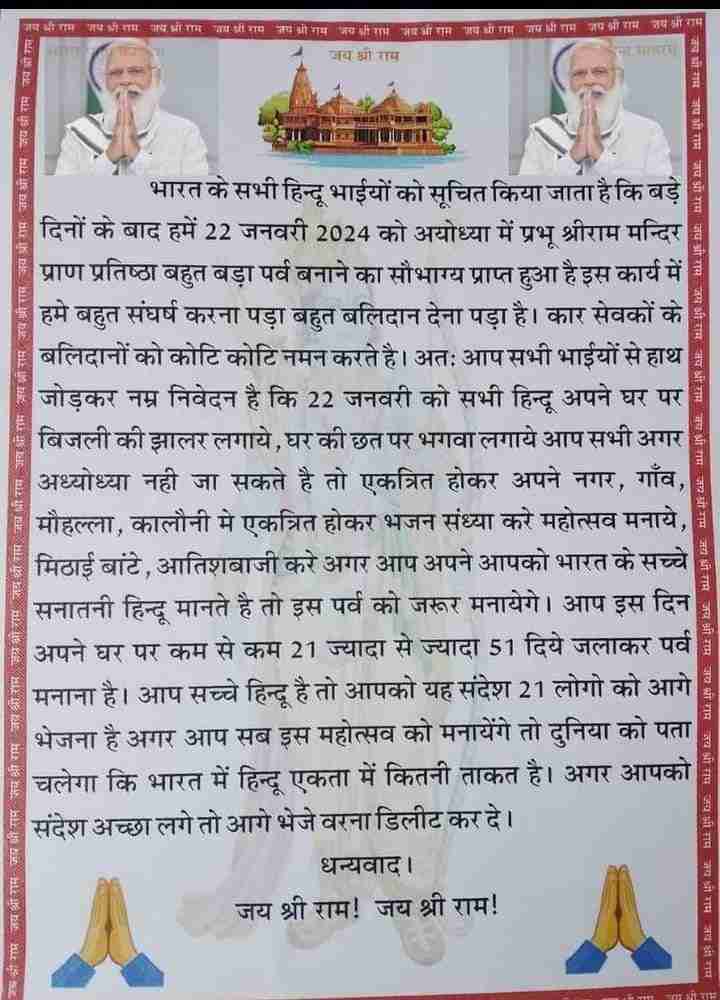 जय श्री राम जय श्री राम जय श्री राम जय श्री राम जय श्री राम जय श्री राम जय श्री राम जय श्री राम जय श्री राम जय श्री राम जय श्री राम
जय श्री राम
भारत के सभी हिन्दू भाईयों को सूचित किया जाता है कि बड़े
दिनों के बाद हमें 22 जनवरी 2024 को अयोध्या में प्रभू श्रीराम मन्दिर
प्राण प्रतिष्ठा बहुत बड़ा पर्व बनाने का सौभाग्य प्राप्त हुआ है इस कार्य में
हमे बहुत संघर्ष करना पड़ा बहुत बलिदान देना पड़ा है। कार सेवकों के
बलिदानों को कोटि कोटि नमन करते है। अतः आप सभी भाईयों से हाथ
जोड़कर नम्र निवेदन है कि 22 जनवरी को सभी हिन्दू अपने घर पर
बिजली की झालर लगाये, घर की छत पर भगवा लगाये आप सभी अगर
अध्योध्या नही जा सकते है तो एकत्रित होकर अपने नगर, गाँव,
मौहल्ला, कालौनी मे एकत्रित होकर भजन संध्या करे महोत्सव मनाये,
मिठाई बांटे, आतिशबाजी करे अगर आप अपने आपको भारत के सच्चे
सनातनी हिन्दू मानते है तो इस पर्व को जरूर मनायेगे। आप इस दिन
अपने घर पर कम से कम 21 ज्यादा से ज्यादा 51 दिये जलाकर पर्व
मनाना है। आप सच्चे हिन्दू है तो आपको यह संदेश 21 लोगो को आगे
भेजना है अगर आप सब इस महोत्सव को मनायेंगे तो दुनिया को पता
चलेगा कि भारत में हिन्दू एकता में कितनी ताकत है। अगर आपको
संदेश अच्छा लगे तो आगे भेजे वरना डिलीट कर दे।
धन्यवाद।
जय श्री राम! जय श्री राम!